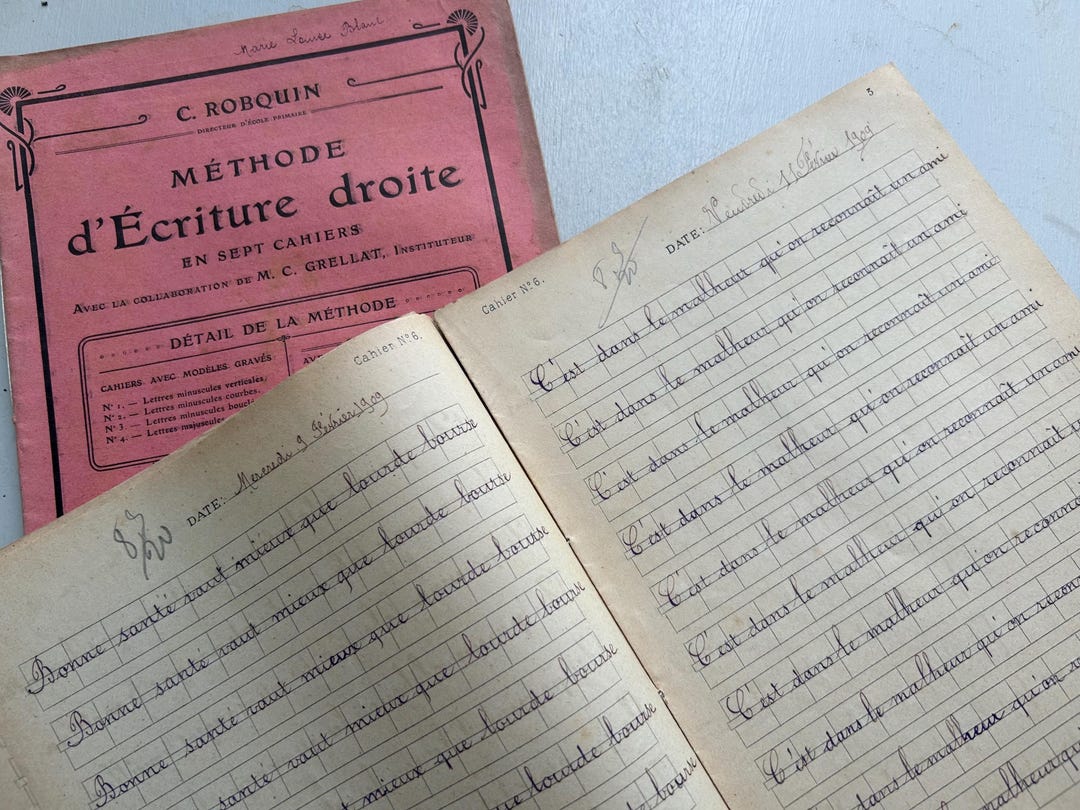 Marie
C. ROBQUIN
DIRECTEUR D'ÉCOLE PRIMAIRE
MÉTHODE
d'Écriture droite
EN SEPT CAHIERS
AVEC LA COLLABORATION DE M. C. GRELLAT, INSTITUTEUR
DÉTAIL DE LA MÉTHODE
CAHIERS AVEC MODÈLES GRAVÉS
N° 1. — Lettres minuscules verticales,
N° 2. — Lettres minuscules courbes.
N° 3. — Lettres minuscules boucl
N° 4. — Lettres majuscules
Cahier N°6.
DATE: Mercredi 9 Février 1909
Bonne santé vaut mieux que lourde bourse
Bonne santé vaut mieux que lourde bourse
Bonne santé vaut mieux que lourde bourse
santé vaut mieux que lourde bourse
mieux que lourde bourse
que lourde bourse
bourse
3
Cahier N°6.
DATE: Vendredi 11 Février 1909
C'est dans le malheur qu'on reconnaît un ami
C'est dans le malheur qu'on reconnaît un ami
C'est dans le malheur qu'on reconnaît un ami
C'est dans le malheur qu'on reconnaît un ami
C'est dans le malheur qu'on reconnaît un ami
C'est dans le malheur qu'on reconnaît u
C'est dans le malheur qu'on reconna
C'est dans le malheur qu'on recon
dans le malheur qu'on r
malheur qu